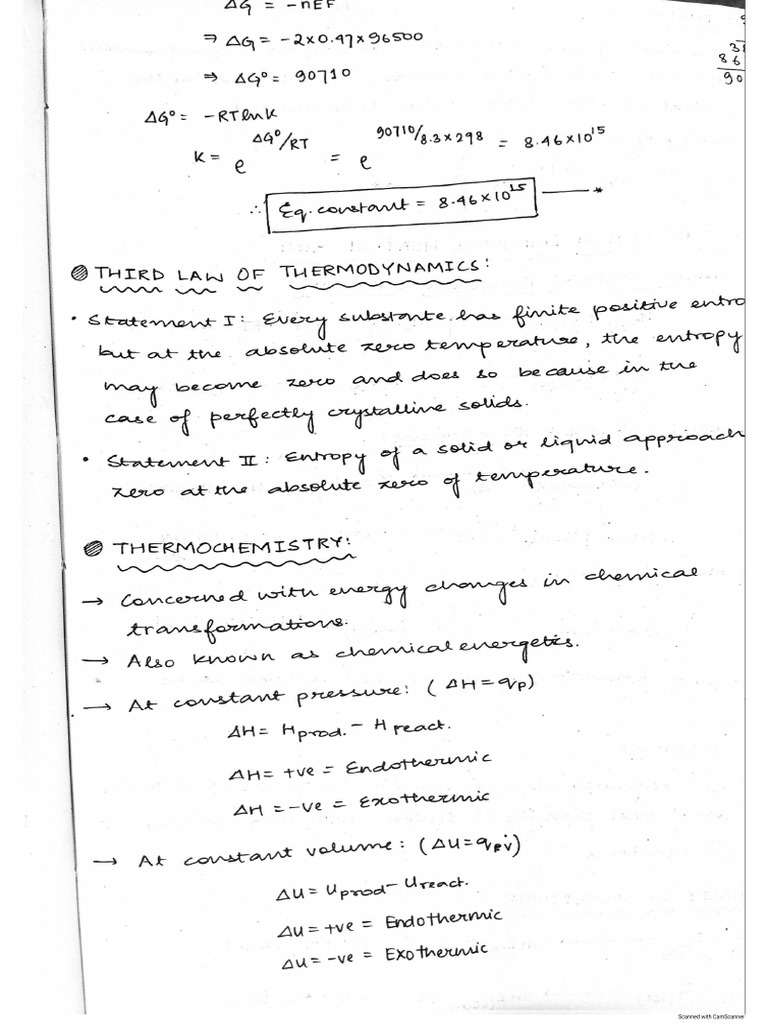 ΔG = -nEF
⇒ ΔG = -2×0.47×96500
⇒ ΔG° = 90710
ΔG° = -RTlnK
K = e^ΔG°/RT = e^90710/8.3×298 = 8.46×10^15
∴ Eq. constant = 8.46×10^15
THIRD LAW OF THERMODYNAMICS:
• Statement I: Every substante has finite positive entro
but at the absolute zero temperature, the entropy
may become zero and does so because in the
case of perfectly crystalline solids.
• Statement II: Entropy of a solid or liquid approach
zero at the absolute zero of temperature.
THERMOCHEMISTRY:
→ Concerned with energy changes in chemical
transformations.
→ Also known as chemical energetics.
→ At constant pressure: (ΔH = qp)
ΔH = H prod. - H react.
ΔH = +ve = Endothermic
ΔH = -ve = Exothermic
→ At constant volume: (ΔU = qv)
ΔU = Uprod - Ureact.
ΔU = +ve = Endothermic
ΔU = -ve = Exothermic
Scanned with CamScanner